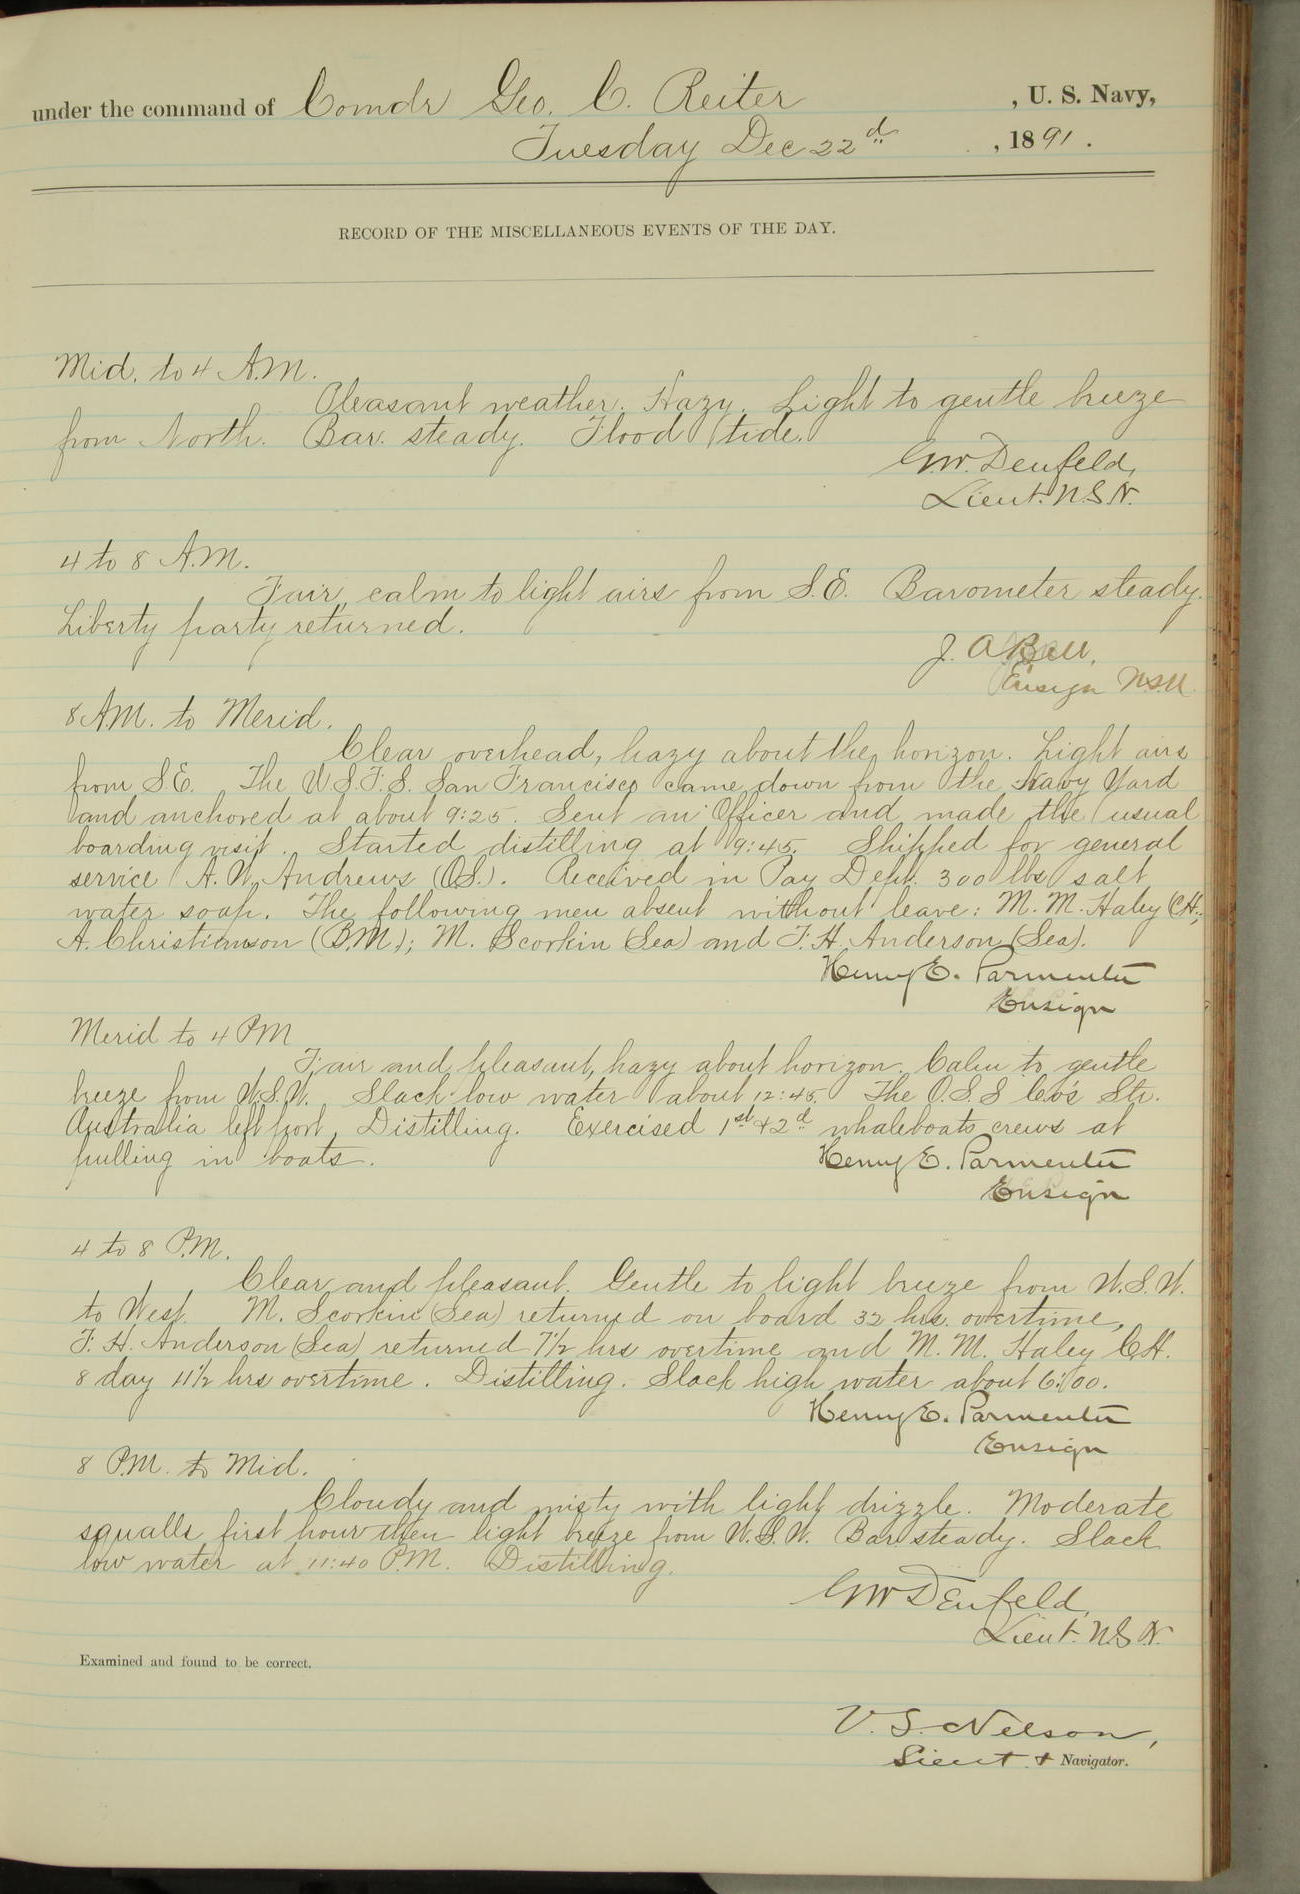 under the command of Comdr Geo. C. Reiter , U. S. Navy,
Tuesday Dec 22d , 1891.
RECORD OF THE MISCELLANEOUS EVENTS OF THE DAY.
Mid. to 4 A.M.
Pleasant weather. Hazy. Light to gentle breeze
from North. Bar. steady. Flood tide.
G.W. Denfeld,
Lieut. U.S.N.
4 to 8 A.M.
Fair, calm to light airs from S.E. Barometer steady.
Liberty party returned.
J. A. Bell,
Ensign U.S.N.
8 AM. to Merid.
Clear overhead, hazy about the horizon. Light airs
from S.E. The U.S.F.S. San Francisco came down from the Navy Yard
and anchored at about 9:25. Sent an Officer and made the usual
boarding visit. Started distilling at 9:45. Shipped for general
service A. W. Andrews (O.S.). Received in Pay Dept. 300 lbs salt
water soap. The following men absent without leave: M. M. Haley (CH.;
A. Christianson (B.M.); M. Scorkin (Sea) and F. H. Anderson (Sea).
Henry E. Parmenter
Ensign
Merid to 4 PM
Fair and pleasant, hazy about horizon. Calm to gentle
breeze from W.S.W. Slack low water about 12:45. The O.S.S Co's Str.
Australia left port. Distilling. Exercised 1st & 2d whaleboats crews at
pulling in boats.
Henry E. Parmenter
Ensign
4 to 8 P.M.
Clear and pleasant. Gentle to light breeze from W.S.W.
to West. M. Scorkin (Sea) returned on board 32 hrs. overtime,
F. H. Anderson (Sea) returned 7½ hrs overtime and M. M. Haley C.H.
8 day 11½ hrs overtime. Distilling. Slack high water about 6:00.
Henry E. Parmenter
Ensign
8 P.M. to Mid.
Cloudy and misty with light drizzle. Moderate
squalls first hour then light breeze from W.S.W. Bar steady. Slack
low water at 11:40 P.M. Distilling.
G W Denfeld,
Lieut. U.S.N.
Examined and found to be correct.
V. S. Nelson,
Lieut. & Navigator.